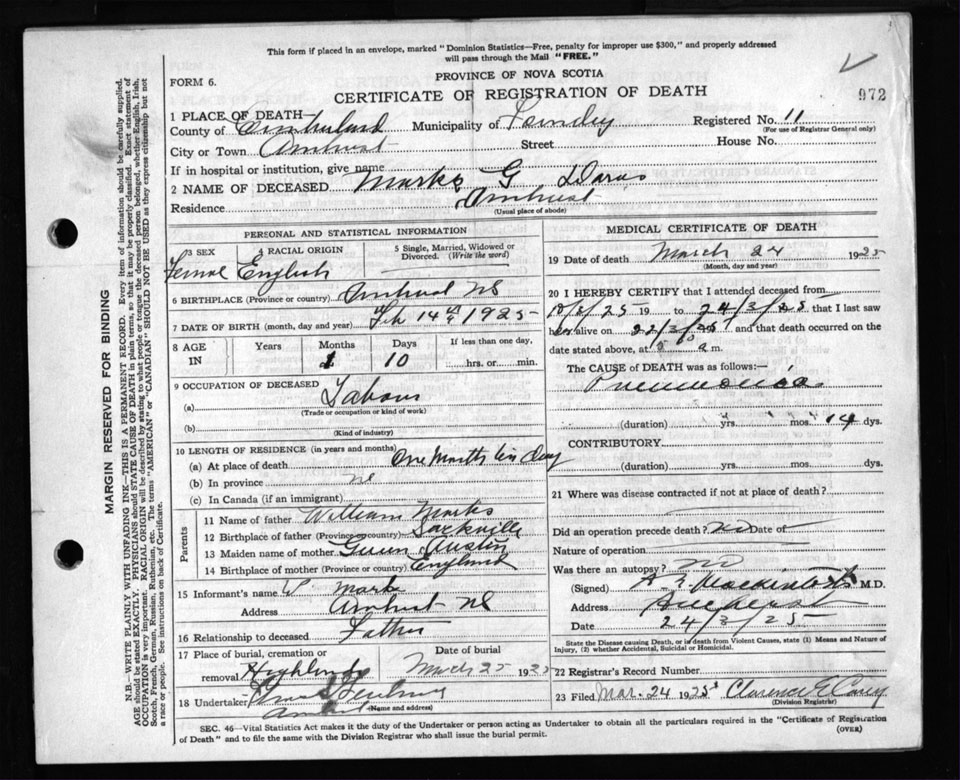 This form if placed in an envelope, marked "Dominion Statistics—Free, penalty for improper use $300," and properly addressed
will pass through the Mail "FREE."
FORM 6.
PROVINCE OF NOVA SCOTIA
CERTIFICATE OF REGISTRATION OF DEATH
972
1 PLACE OF DEATH—
County of Municipality of Registered No. 11
(For use of Registrar General only)
City or Town Amherst Street House No.
If in hospital or institution, give name
2 NAME OF DECEASED Marks G
Residence Amherst
(Usual place of abode)
PERSONAL AND STATISTICAL INFORMATION
3 SEX 4 RACIAL ORIGIN 5 Single, Married, Widowed or Divorced. (Write the word)
Female English
6 BIRTHPLACE (Province or country) Amherst NS
7 DATE OF BIRTH (month, day and year) Feb 14th 1925
8 AGE IN Years Months Days If less than one day,
1 10 hrs. or min.
9 OCCUPATION OF DECEASED
(a)
(Trade or occupation or kind of work)
(b)
(Kind of industry)
10 LENGTH OF RESIDENCE (in years and months)
(a) At place of death One Month Day
(b) In province NS
(c) In Canada (if an immigrant)
Parents
11 Name of father William Marks
12 Birthplace of father (Province or country) Sackville
13 Maiden name of mother Austin
14 Birthplace of mother (Province or country) England
15 Informant's name W Marks
Address Amherst NS
16 Relationship to deceased Father
17 Place of burial, cremation or removal Highland
Date of burial
March 25 1925
18 Undertaker
(Name and address)
MEDICAL CERTIFICATE OF DEATH
19 Date of death March 24 1925
(Month, day and year)
20 I HEREBY CERTIFY that I attended deceased from
19 to 24/3/25 that I last saw
her alive on 22/3/25 and that death occurred on the
date stated above, at a m.
The CAUSE of DEATH was as follows:—
Pneumonia
(duration) yrs. mos. 14 dys.
CONTRIBUTORY
(duration) yrs. mos. dys.
21 Where was disease contracted if not at place of death?
Did an operation precede death? No Date of
Nature of operation
Was there an autopsy? no
(Signed) Mackintosh M.D.
Address Amherst
Date 24/3/25
State the Disease causing Death, or in death from Violent Causes, state (1) Means and Nature of
Injury, (2) whether Accidental, Suicidal or Homicidal.
22 Registrar's Record Number
23 Filed Mar. 24 1925 Clarence E
(Division Registrar)
SEC. 46—Vital Statistics Act makes it the duty of the Undertaker or person acting as Undertaker to obtain all the particulars required in the "Certificate of Registration
of Death" and to file the same with the Division Registrar who shall issue the burial permit.
(OVER)
MARGIN RESERVED FOR BINDING
N.B.—WRITE PLAINLY WITH UNFADING INK—THIS IS A PERMANENT RECORD. Every item of information should be carefully supplied.
AGE should be stated EXACTLY. PHYSICIANS should STATE CAUSE OF DEATH in plain terms, so that it may be properly classified. Exact statement of
OCCUPATION is very important. RACIAL ORIGIN will be described by stating to what people or tongue the deceased person belonged, whether English, Irish,
Scotch, French, German, Russian, Ruthenian, etc. The terms "AMERICAN" or "CANADIAN" SHOULD NOT BE USED as they express citizenship but not
a race or people. See instructions on back of Certificate.